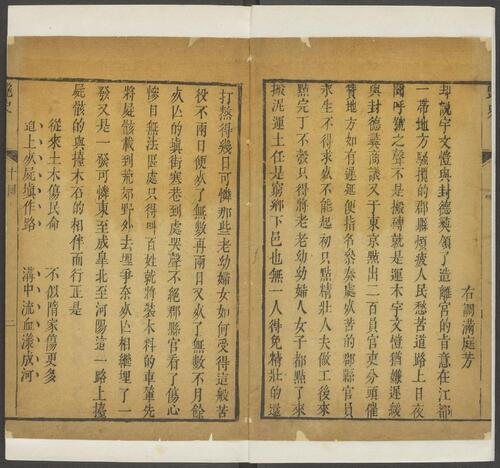 艷史
右調滿庭芳
却說宇文愷與封德彞領了造離宮的旨意在江都
一帶地方騷擾的郡縣煩疲人民愁苦道路上日夜
聞呼號之聲不是搬磚就是運木宇文愷猶嫌遲緩
與封德彞商議又于東京點出二百員官吏分頭催
督地方如有遲延便指名叅奏處𣦸苦的郡縣官員
求生不得求𣦸不能起初只點精壯人夫做工後來
點完丁不彀只得將老老幼幼婦人女子都點了來
搬泥運土任是窮鄉下邑也無一人得免精壯的還
打熬得幾日可憐那些老幼婦女如何受得這般苦
役不兩日便𣦸了無數再兩日又𣦸了無數不月餘
𣦸亾的填街塞巷到處哭聲不絕郡縣官看了傷心
慘目無法區處只得叫百姓就將裝木料的車輦先
將屍骸載到荒郊野外去埋爭奈𣦸亾相繼埋了一
發又是一發可憐東至成皐北至河陽這一路上擡
屍骸的與擡木石的相伴而行正是
從來土木傷民命 不似隋家傷更多
道上𣦸屍填作路 溝中流血漾成河
艷史 十回 二